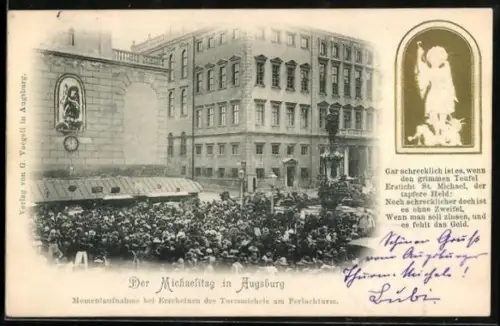 Verlag von G. Voegeli in Augsburg.
Gar schrecklich ist es, wenn
den grimmen Teufel
Ersticht St. Michael, der
tapfere Held:
Noch schrecklicher doch ist
es ohne Zweifel,
Wenn man soll zinsen, und
es fehlt das Geld.
Schönen Gruß
vom Augsburger
Thurm Michele!
Der Michaelitag in Augsburg
Momentaufnahme bei Erscheinen der Turamichels am Perlachturm.